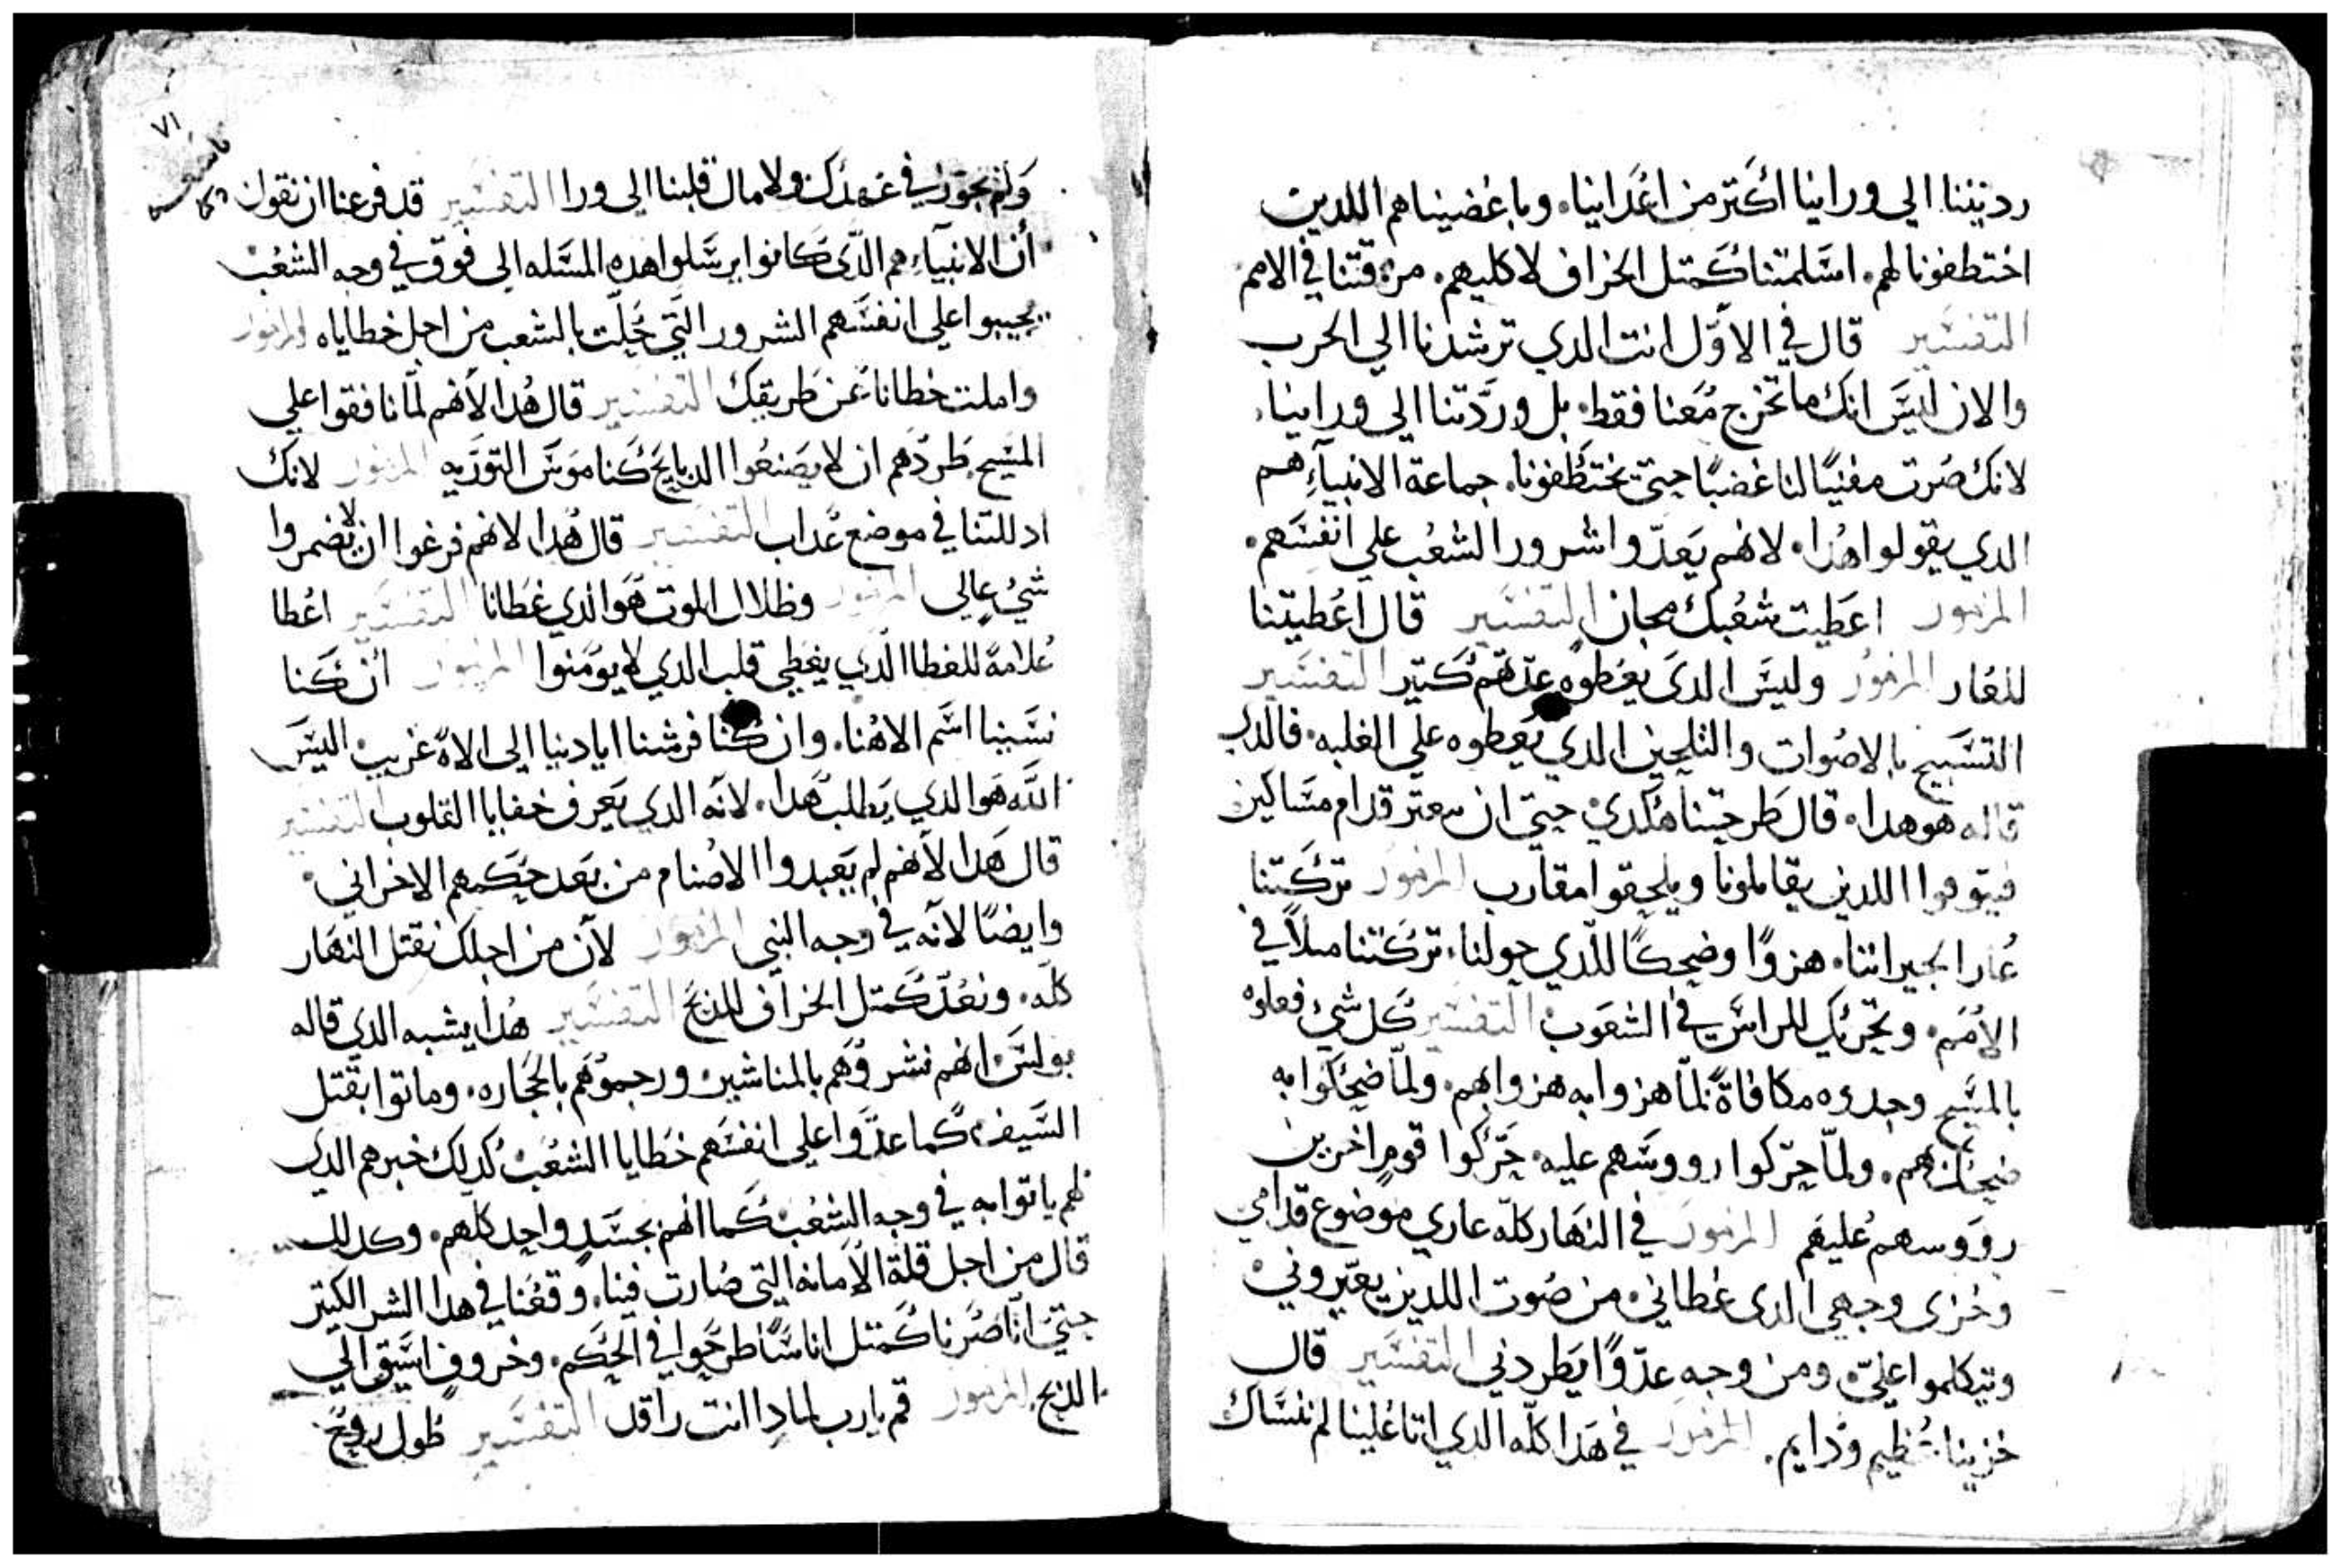 رديننا الي ورانيا اكتر من اعدانيا. وباغضيناهم اللدين
اختطفونا لهم. اسلمتنا كمتل الخراف لاكليهم. مزقتنا في الامم
التفسير قال في الاوّل انت الدي ترشدنا الي الحرب
والان اليس انك ما تخرج معنا فقط. بل وردّتنا الي ورانيا.
لانك صرت مفنيًا لنا غضبًا حيتي يختطفونا. جماعة الانبيآء هم
الدي يقولوا هدا. لانهم يعدّوا شرور الشعب علي انفسهم.
المزمور اعطيت شعبك مجان التفسير قال اعطيتنا
للعار المزمور وليس الدي يعطوه عدّهم كتير التفسير
التسبيح بالاصوات والتلحين الدي يعطوه علي الغلبه. فالدي
قاله هو هدا. قال طرحتنا هكدي حيتي ان قدام مساكين
اللدين يقاتلونا ويلحقوا مقارب المزمور تركتنا
عارا لجيراننا. هزوًا وضحكًا للّدي حولنا. تركتنا مثلاً في
الامم. وتحريك للراس في الشعوب التفسير كل شي فعلوه
بالمسيح وجدوه مكافاةً لمّا هزوا به هزوا بهم. ولمّا ضحكوا به
ضحك بهم. ولمّا حرّكوا رووسهم عليه. حرّكوا قومٍ اخرين
رووسهم عليهم المزمور في النهار كلّه عاري موضوع قدامي
وخزي وجهي الدي غطاني. من صوت اللدين يعيّروني
ويتكلموا عليّ. ومن وجه عدوًّا يطردني التفسير قال
خزينا عظيم ودايم. المزمور في هدا كلّه الدي اتا علينا لم ننساك
٧١
ولم نجوّر في عهدك ولا مال قلبنا الي ورا التفسير قد فرعنا ان نقول
أن الانبيآء هم الدّي كانوا يرسلوا هده المسله الي فوق في وجه الشعب
يجيبوا علي انفسهم الشرور التي حلّت بالشعب من اجل خطاياه المزمور
واملت خطانا عن طريقك التفسير قال هدا لانهم لمّا نافقوا علي
المسيح طردهم ان لا يصنعوا الدبايح كناموس التوريه المزمور لانك
ادللتنا في موضع عداب التفسير قال هدا لانهم فرغوا ان لا يضمروا
شي عالي المزمور وظلال الموت هو الدي غطانا التفسير اعطا
علامة للغطا الّدي يغطي قلب الدي لا يومنوا المزمور أن كنا
نسينا اسم الاهنا. وان كنا فرشنا ايادينا الي الاه غريب اليس
اللّه هو الدي يطلب هدا. لانه الدي يعرف خفايا القلوب التفسير
قال هدا لانهم لم يعبدوا الاصنام من بعد حكمهم الاخراني.
وايضًا لانه في وجه النبي المزمور لان من اجلك نقتل النهار
كلّه. ونعدّ كمتل الخراف للدبح التفسير هدا يشبه الدي قاله
بولس انهم نشروهم بالمناشير. ورجموهم بالحجاره. وماتوا بقتل
السيف. كما عدّوا علي انفسهم خطايا الشعب. كدلك خبرهم الدي
لهم ياتوا به في وجه الشعب. كما انهم بجسدٍ واحد كلّهم. وكدلك
قال من اجل قلة الامانه التي صارت فينا. وقعنا في هدا الشر الكبير
حيتي انّا صرنا كمتل اناسًا طرحوا في الحكم. وخروفٍ اسيق الي
الدبح المزمور قم يارب لمادا انت راقد التفسير طول روح